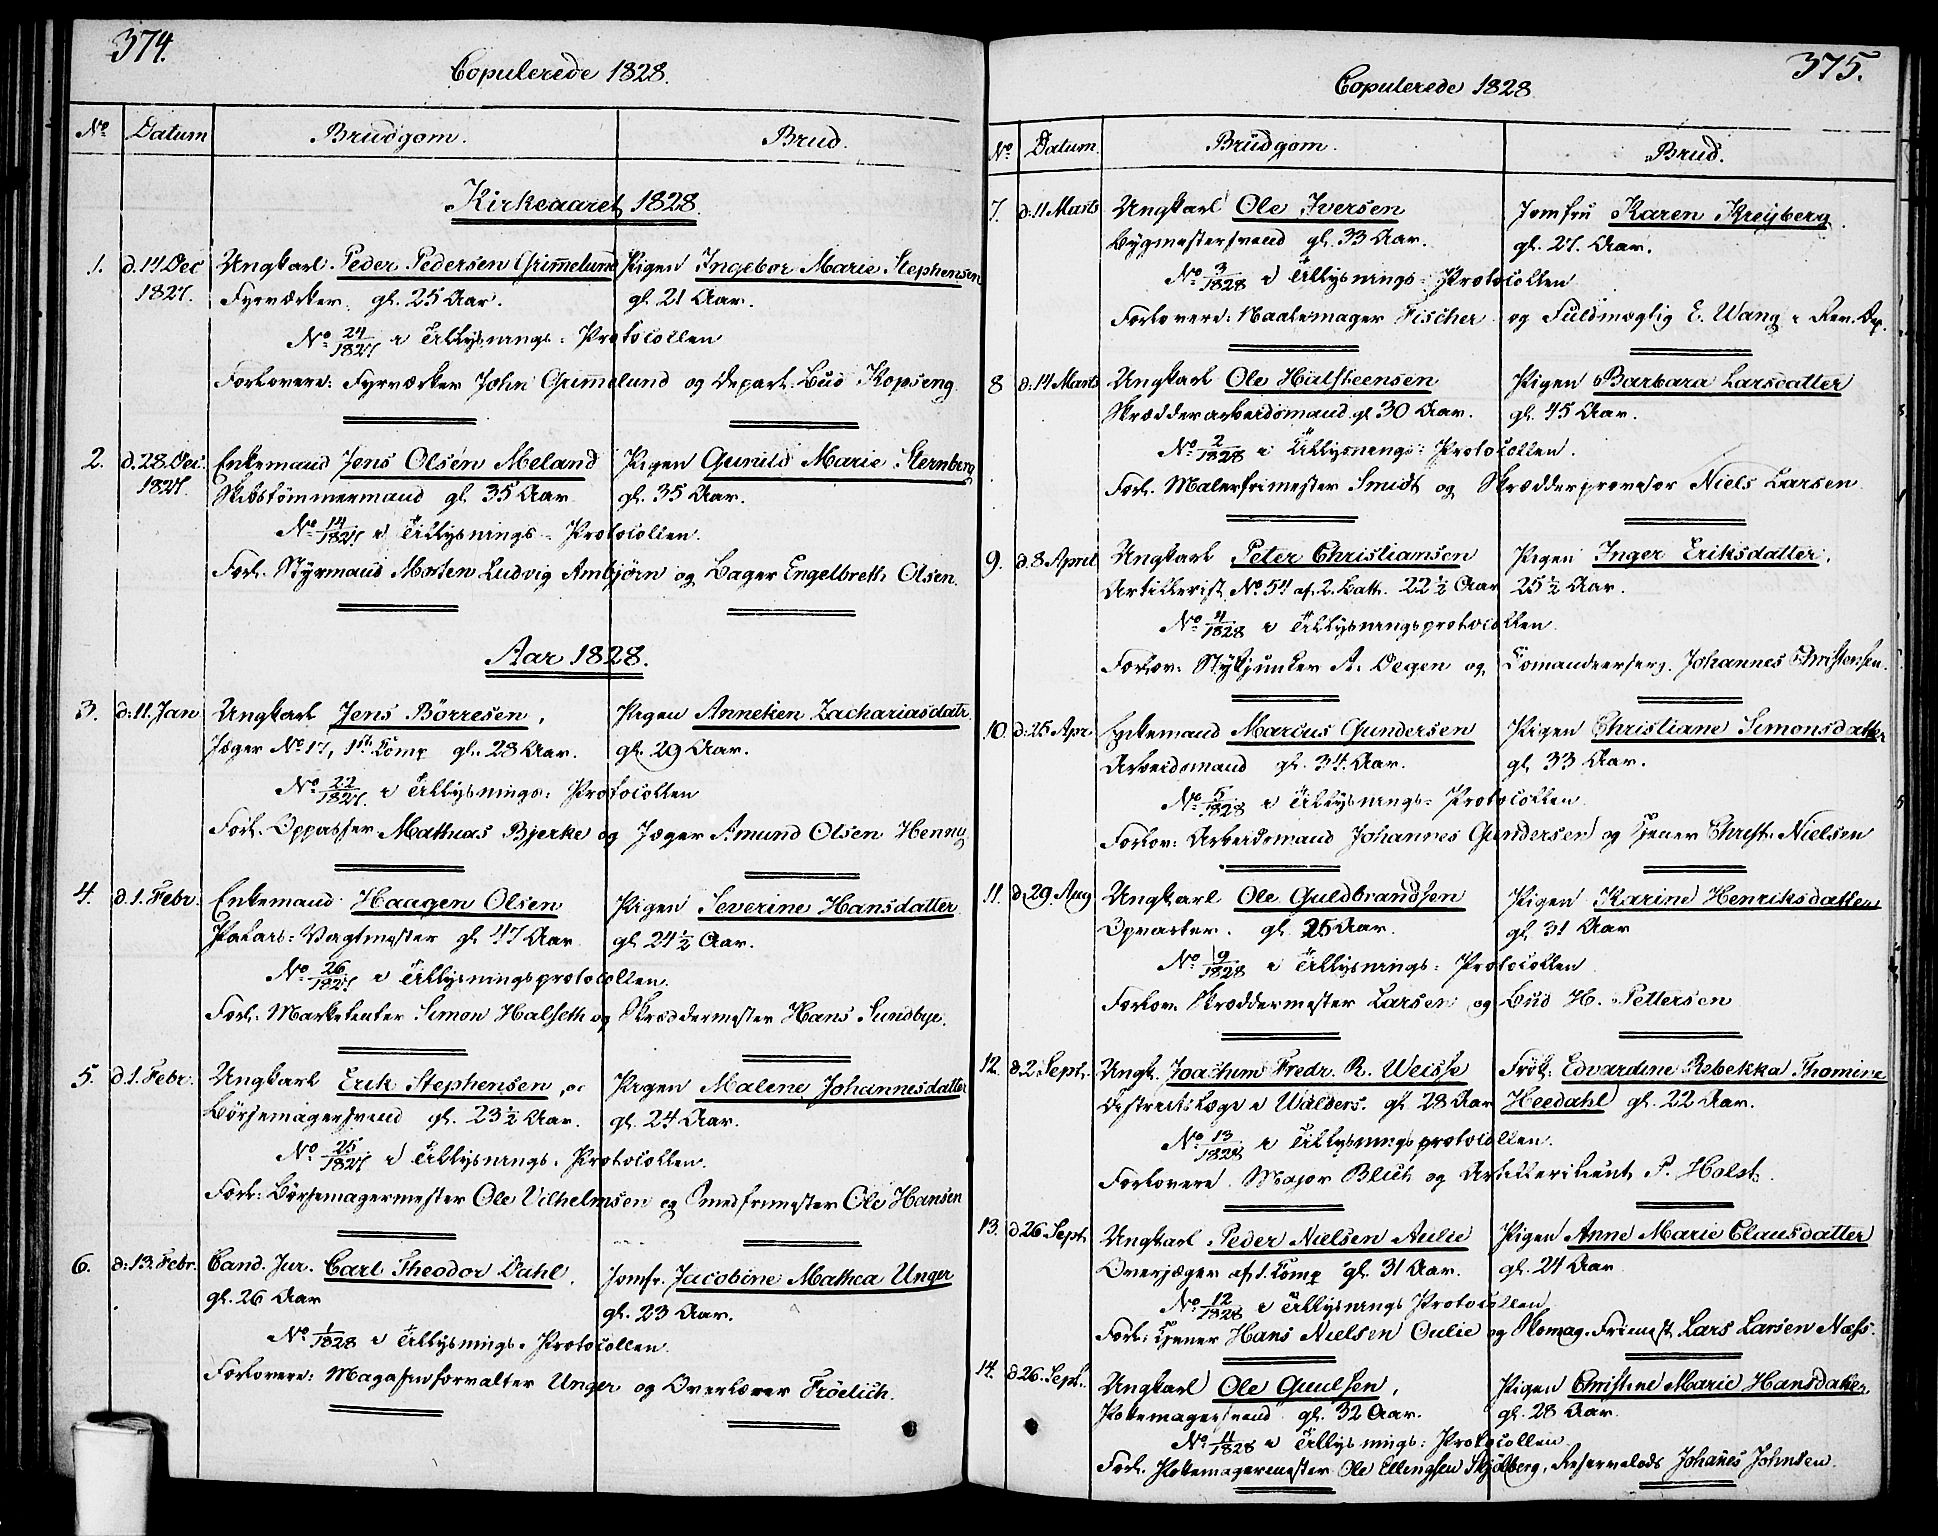 374.
Copulerede 1828.
No Datum Brudgom. Brud.
Kirkeaaret 1828.
1. d. 14 Dec Ungkarl Peder Pedersen Grimelund Pigen Ingebor Marie Stephensen
1827. Fyrværker gl. 25 Aar. gl. 21 Aar.
No 24/1827 i Tillysnings-Protocollen
Forlovere: Fyrværker John Grimelund og Depart. Bud Kopseng.
2. d. 28. Dec. Enkemand Jens Olsen Meland Pigen Gunild Marie Sternberg
1827. Skibstömmermand gl. 35 Aar gl. 35 Aar.
No 14/1827 i Tillysnings-Protocollen.
Forl. Styrmand Morten Ludvig Ambjörn og Bager Engelbreth Olsen.
Aar 1828.
3. d. 11. Jan Ungkarl Jens Börresen, Pigen Anneken Zachariasdatr.
Jæger No 17, 1ste Comp gl. 28 Aar. gl. 29 Aar.
No 22/1827. i Tillysnings-Protocollen
Forl. Oppasser Mathias Bjerke og Jæger Amund Olsen Henny
4. d. 1. Febr. Enkemand Haagen Olsen Pigen Severine Hansdatter
Vagtmester gl. 47 Aar gl. 24 1/2 Aar.
No 26/1827 i Tillysningsprotocollen.
Forl. Marketenter Simon Halseth og Skræddermester Hans Sundbye.
5. d. 1. Febr. Ungkarl Erik Stephensen, Pigen Malene Johannesdatter
Börsemagersvend gl. 23 1/2 Aar. gl. 24 Aar.
No 25/1827 i Tillysnings-Protocollen.
Forl: Börsemagermester Ole Vilhelmsen og Smedfrimester Ole Hansen
6. d. 13. Febr. Cand. Jur. Carl Theodor Dahl. Jomfr. Jacobine Mathea Unger
gl. 26 Aar gl. 23 Aar.
No 1/1828 i Tillysnings-Protocollen.
Forlovere: Magasinforvalter Unger og Overlærer Frölich.
375.
Copulerede 1828
No Datum. Brudgom. Brud.
7. d. 11 Marts Ungkarl Ole Iversen Jomfru Karen Kreyberg.
Bygmestersvend gl. 33 Aar. gl. 27. Aar.
No 3/1828 i Tillysnings-Protocollen
Forlovere: Naalemager Fischer og Fuldmægtig E. Wang i Rev. Dep.
8 d. 14 Marts Ungkarl Ole Halsteensen Pigen Barbara Larsdatter
Skrædderarbeidsmand gl 30 Aar. gl. 45 Aar.
No 2/1828 i Tillysnings-Protocollen.
Forl. Malerfrimester Smidt og Skrædderprovisor Niels Larsen
9. d. 8 April Ungkarl Peter Christiansen Pigen Inger Eriksdatter.
Artillerist No 54 af 2. Batt. 22 1/2 Aar 25 1/2 Aar.
No 4/1828 i Tillysningsprotocollen
Forlov: Stykjunker A. Degen og Comandeerserg. Johannes Christensen.
10. d. 25 Apr. Enkemand Marcus Gundersen Pigen Christiane Simonsdatter
Arbeidsmand gl. 34. Aar. gl 33 Aar.
No 5/1828 i Tillysnings-Protocollen
Forlov: Arbeidsmand Johannes Gundersen og Tjener Christ. Nielsen
11. d. 29. Aug Ungkarl Ole Guldbrandsen Pigen Karine Henriksdatter
Opvarter. gl. 25 Aar. gl 31 Aar
No 9/1828 i Tillysnings-Protocollen
Forlov. Skræddermester Larsen og Bud H. Pettersen
12. d. 2. Sept. Ungk. Joachum Fredr. R. Weisse Frök: Edvardine Rebekka Thomine
Districtslæge i Walders. gl 28 Aar Heedahl gl. 22 Aar.
No 13/1828 i Tillysningsprotocollen.
Forlovere Major Blich og Artillerilieut. P. Holst.
13. d 26 Sept. Ungkarl Peder Nielsen Aulie Pigen Anne Marie Clausdatter
Overjæger af 1. Comp gl. 31 Aar. gl. 24 Aar
No 12/1828 i Tillysnings Protocollen
Forl: Tjener Hans Nielsen Oulie og Skomag. Frimest. Lars Larsen Næss.
14. d 26. Sept. Ungkarl Ole Guulsen, Pigen Christine Marie Hansdatter
gl. 32 Aar. gl. 28 Aar.
No 11/1828 i Tillysnings-Protocollen
Forl. Ole Ellingsen Skjölberg, Reservelods Johanes Johnsen.